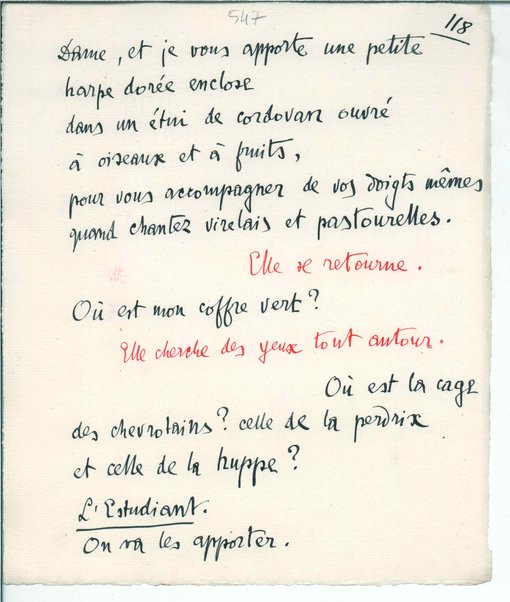 547
118
Dame, et je vous apporte une petite
harpe dorée enclose
dans un étui de cordovan ouvré
à oiseaux et à fruits,
pour vous accompagner de vos doigts mêmes
quand chantez virelais et pastourelles.
Elle se retourne.
Où est mon coffre vert?
Elle cherche des yeux tout autour.
Où est la cage
des chevrotains? celle de la perdrix
et celle de la huppe?
L'Estudiant.
On va les apporter.